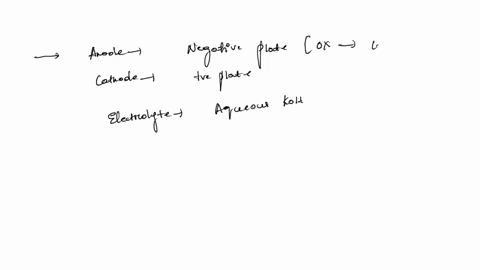 → Anode → Negative plate [OX →
Cathode → +ve plate
Electrolyte → Aqueous KOH